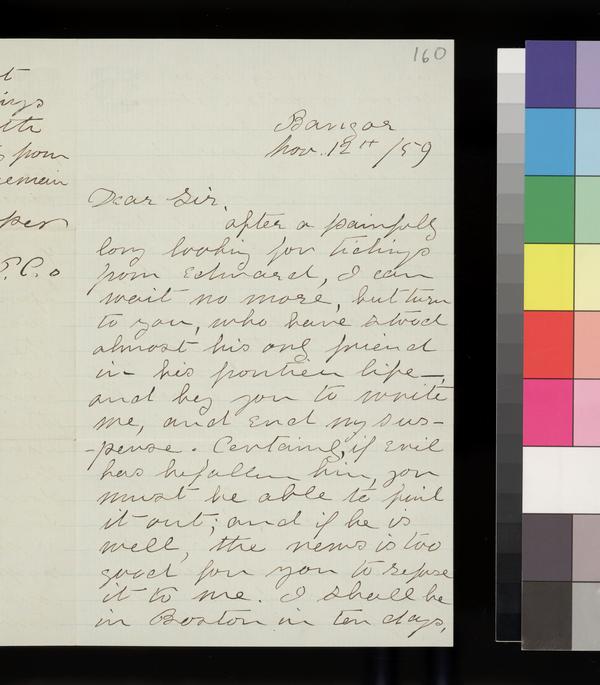 160
Bangor
Nov. 12th /59
Dear Sir.
after a painfully
long looking for tidings
from Edward, I can
wait no more, but turn
to you, who have stood
almost his only friend
in his frontier life—,
and beg you to write
me, and end my sus-
-pense. Certainly, if evil
has befallen him, you
must be able to find
it out; and if he is
well, the news is too
good for you to refuse
it to me. I shall be
in Boston in ten days,
t
ings
tth
s from
remain
per
P.C.o